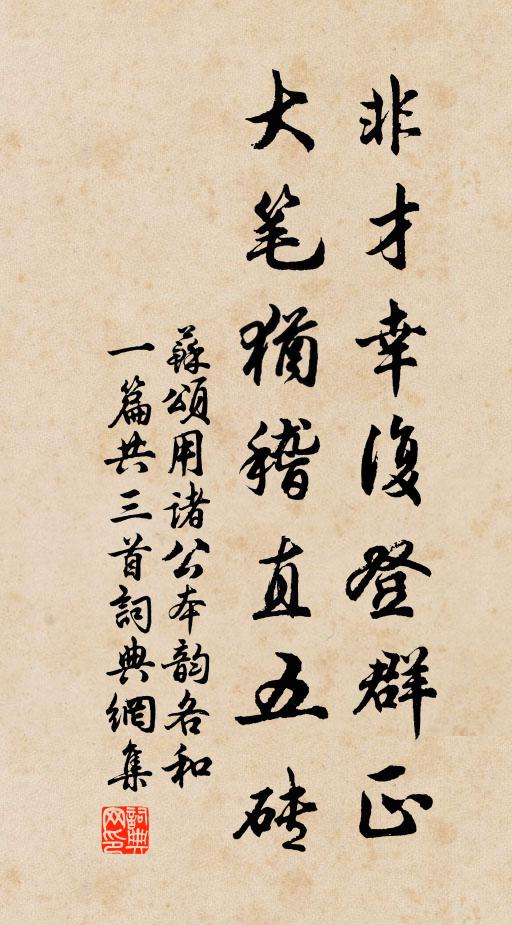 非才幸復登群正
大笔猶稽直五磚
蘇頌用诸公本韵各和
一篇共三首詞典網集
詞典网印